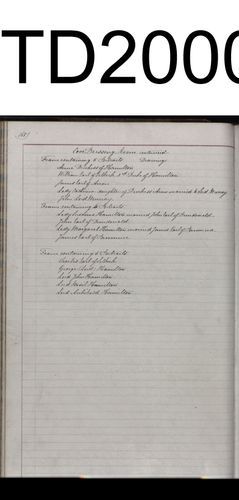 TD2000
Dressing Room continued
Frame containing 5 Portraits Drawings
Anne Duchess of Hamilton
William Earl of Selkirk 3rd Duke of Hamilton
James Earl of Arran
Lady Catherine daughter of Duchess Anne married to Lord Murray
John Lord Murray
Frame containing 4 Portraits
Lady Susanna Hamilton married John Earl of Dundonald
John Earl of Dundonald
Lady Margaret Hamilton married James Earl of Panmure
James Earl of Panmure
Frame containing 5 Portraits
Charles Earl of Selkirk
George Lord Hamilton
Lord John Hamilton
Lord Basil Hamilton
Lord Archibald Hamilton